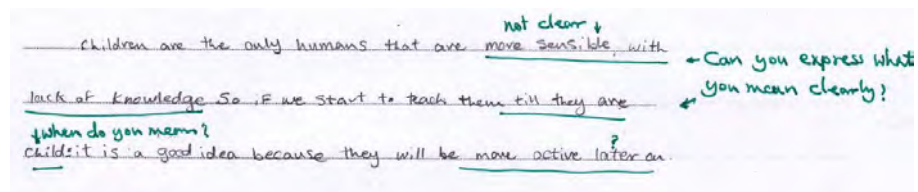 not clear ↓
Children are the only humans that are more sensible, with
← Can you express what you mean clearly?
lack of knowledge So if we start to teach them till they are
↓ When do you mean?
?
childs it is a good idea because they will be more active later on.